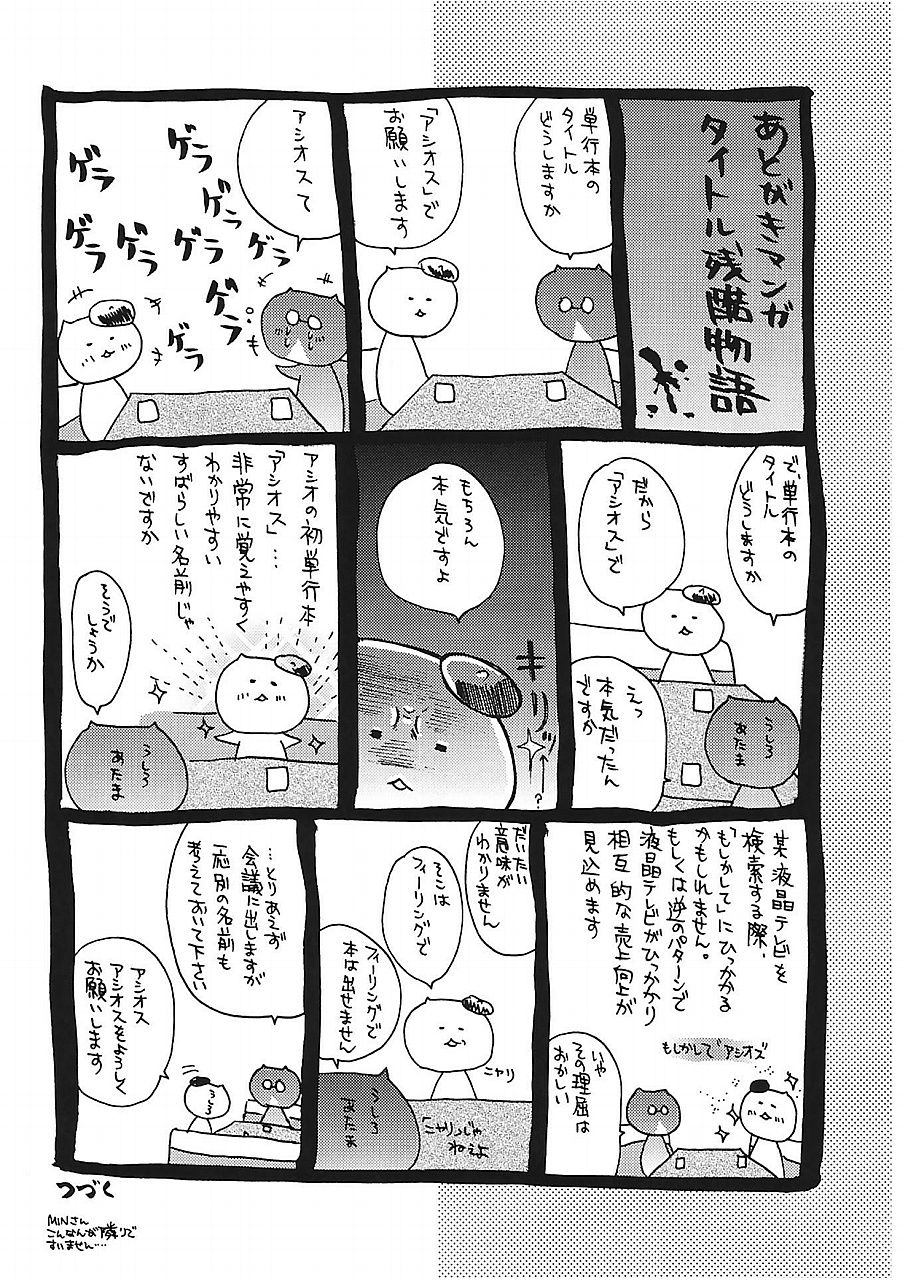 あとがきマンガ
タイトル残酷物語
単行本の
タイトル
どうしますか
「アシオス」で
お願いします
アシオスて
ゲラ
ゲラ
ゲラ
ゲラ
ゲラ
ゲラ
ゲラ
ゲラ
ゲラ
で、単行本の
タイトル
どうしますか
だから
「アシオス」で
えっ
本気だったん
ですか
うしろ
あたま
もちろん
本気ですよ
キリッ
?
アシオの初単行本
「アシオス」…
非常に覚えやすく
わかりやすい
すばらしい名前じゃ
ないですか
そうで
しょうか
うしろ
あたま
某液晶テレビを
検索する際、
「もしかして」にひっかかる
かもしれません。
もしくは逆のパターンで
液晶テレビがひっかかり
相互的な売上向上が
見込めます
もしかして゛アシオズ
いや
その理屈は
おかしい
だいたい
意味が
わかりません
そこは
フィーリングで
フィーリングで
本は出せません
ニヤリ
「ニヤリ」じゃ
ねぇよ
うしろ
あたま
…とりあえず
会議に出しますが
一応別の名前も
考えておいて下さい
アシオス
アシオスをよろしく
お願いします
うしろ
つづく
MINさん
こんなんが隣りで
すいません…